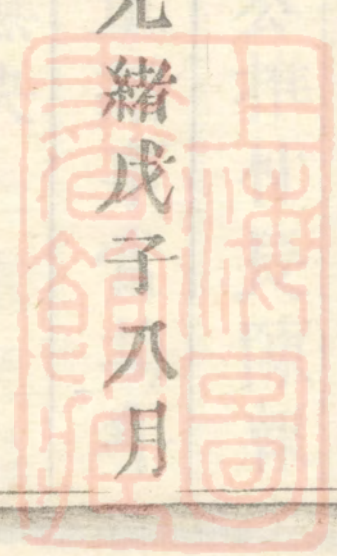 光緒戊子八月
上海圖
書館藏